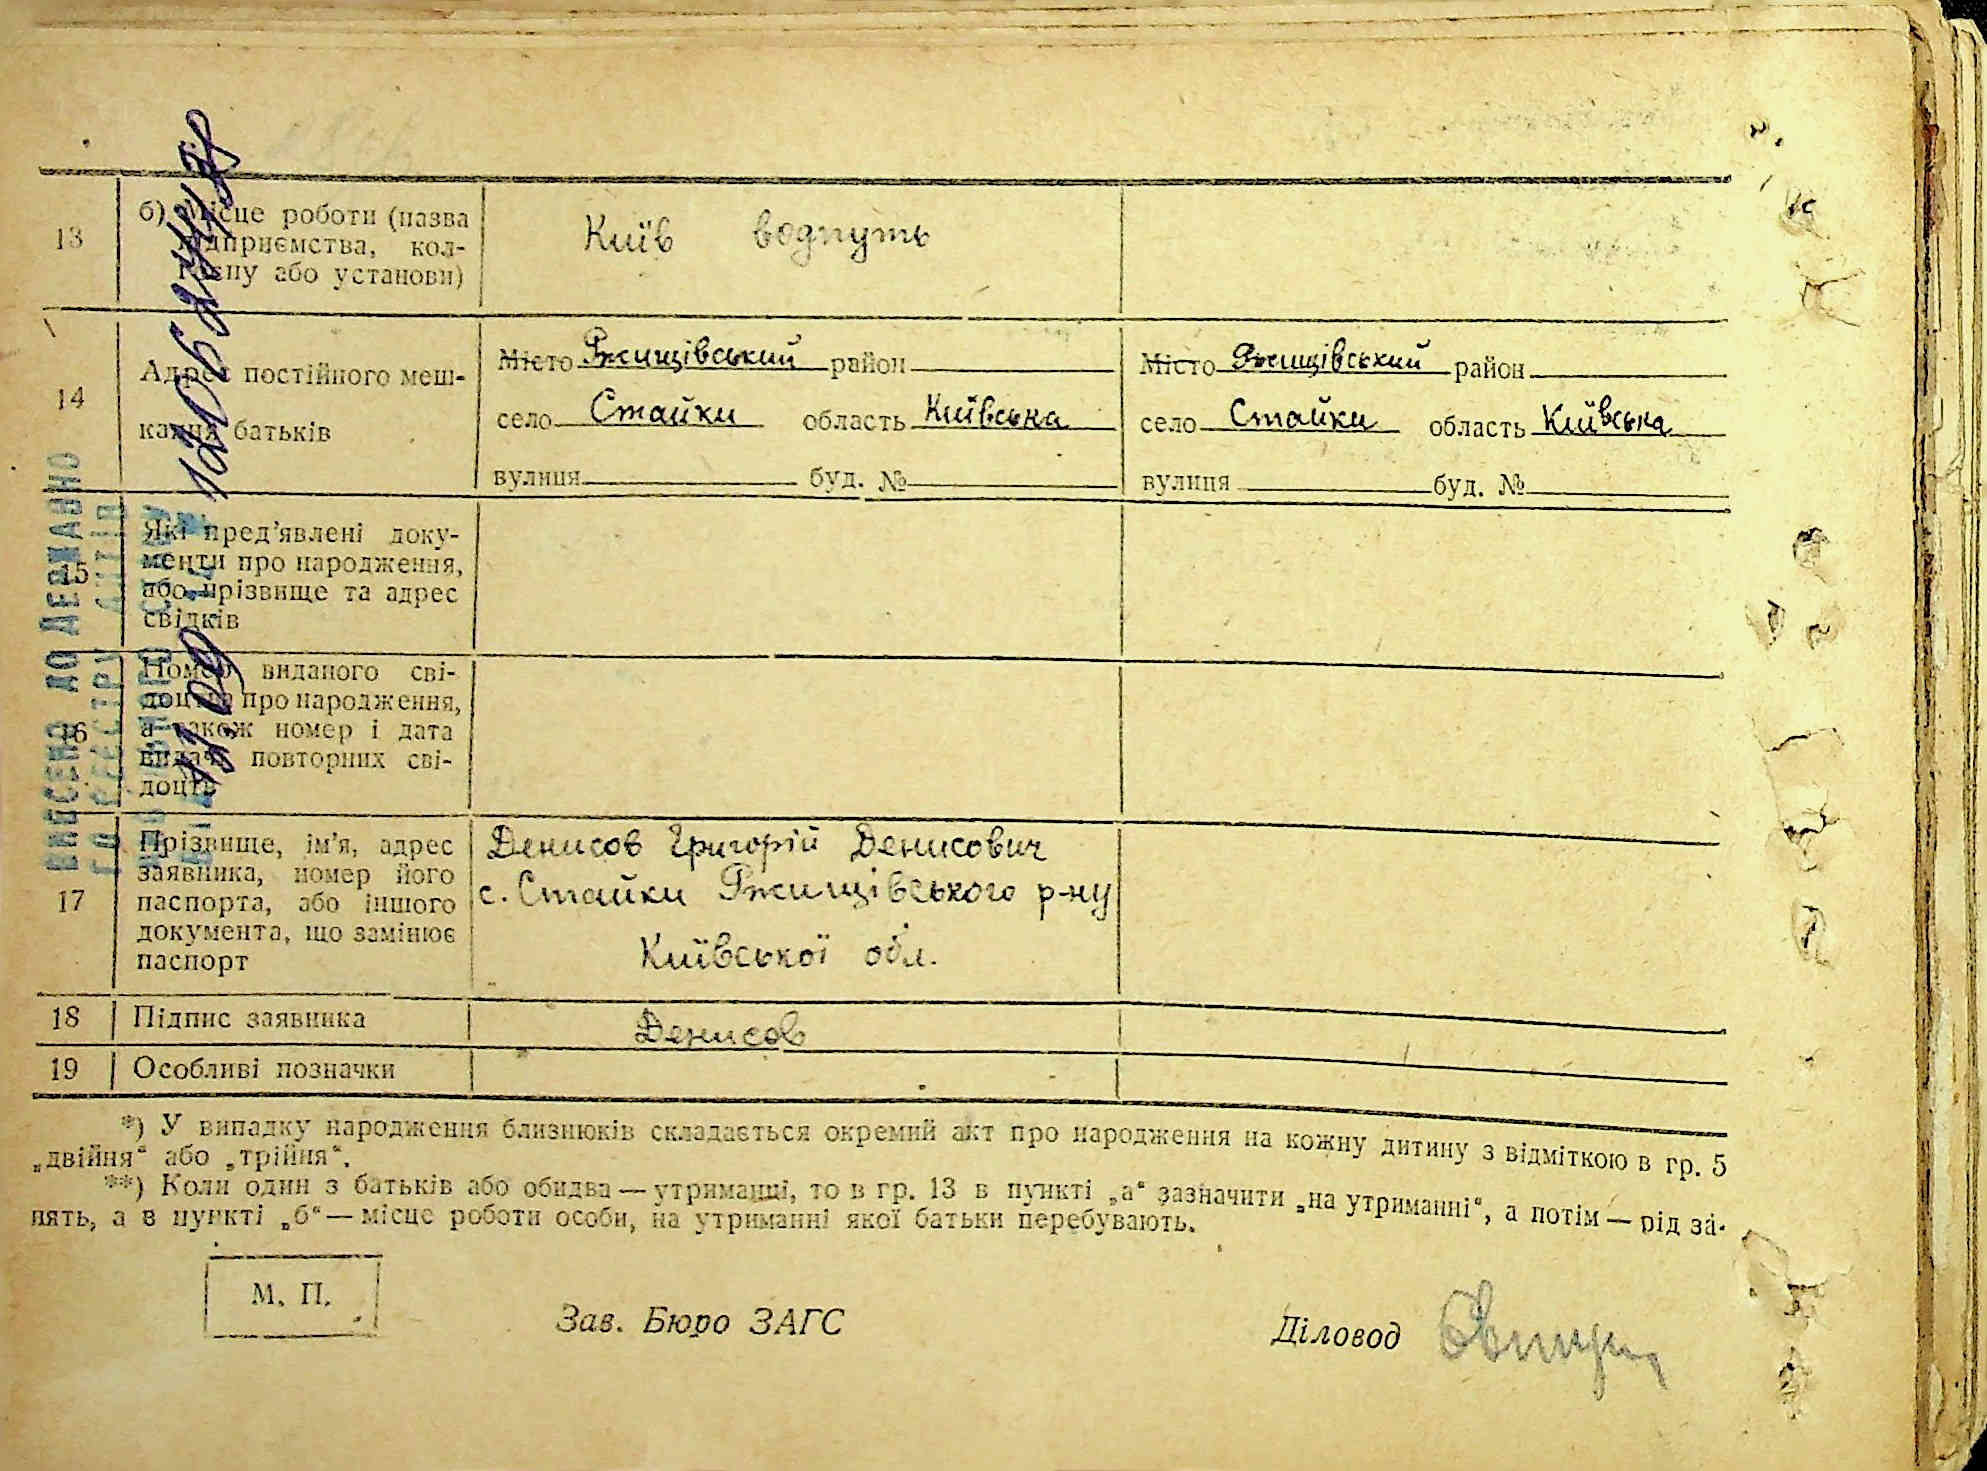 13
б) Місце роботи (назва
підприємства, кол-
госпу або установи)
Київ водпуть
14
Адрес постійного меш-
кання батьків
Місто Ржищівський район
село Стайки область Київська
вулиця буд. №
Місто Ржищівський район
село Стайки область Київська
вулиця буд. №
15
Які пред’явлені доку-
менти про народження,
або прізвище та адрес
свідків
16
Номер виданого сві-
доцтва про народження,
а також номер і дата
видачі повторних сві-
доцтв
17
Прізвище, ім’я, адрес
заявника, номер його
паспорта, або іншого
документа, що замінює
паспорт
Денисов Григорій Денисович
с. Стайки Ржищівського р-ну
Київської обл.
18
Підпис заявника
Денисов
19
Особливі позначки
*) У випадку народження близнюків складається окремий акт про народження на кожну дитину з відміткою в гр. 5
„двійня“ або „трійня“.
**) Коли один з батьків або обидва — утриманці, то в гр. 13 в пункті „а“ зазначити „на утриманні“, а потім — рід за-
нять, а в пункті „б“ — місце роботи особи, на утриманні якої батьки перебувають.
М. П.
Зав. Бюро ЗАГС
Діловод
ВНЕСЕНО ДО ДЕРЖАВНО
ГО РЕЄСТРУ АКТІВ